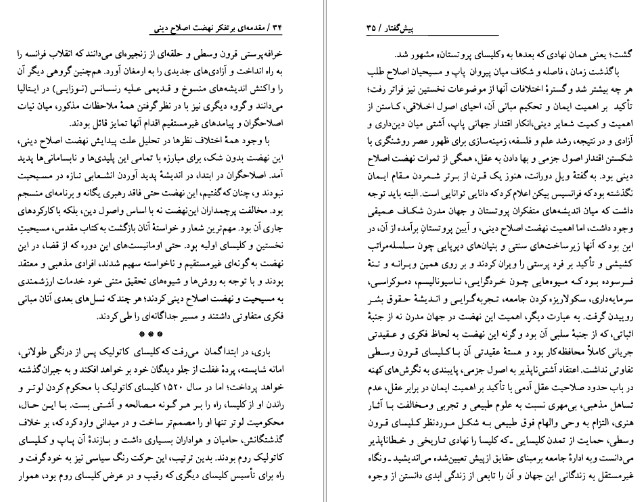 ۳۴ / مقدمه‌ای بر تفکر نهضت اصلاح دینی
خرافه‌پرستی قرون وسطی و حلقه‌ای از زنجیره‌ای می‌دانند که انقلاب فرانسه را
به راه انداخت و آزادی‌های جدیدی را به ارمغان آورد. هم‌چنین گروهی دیگر آن
را واکنش اندیشه‌های منسوخ و قدیمی علیه رنسانس (نوزایی) در ایتالیا
می‌دانند و گروه دیگری نیز با در نظر گرفتن همهٔ ملاحظات مذکور، میان نیات
اصلاحگران و پیامدهای غیرمستقیم اقدام آنها تمایز قائل بودند.
با وجود همهٔ اختلاف نظرها در تحلیل علت پیدایش نهضت اصلاح دینی،
این نهضت بدون شک، برای مبارزه با تمامی این پلیدی‌ها و نابسامانی‌ها پدید
آمد. اصلاحگران در ابتدا در اندیشهٔ پدید آوردن انشعابی تازه در مسیحیت
نبودند و، چنان که گفتیم، این نهضت حتی فاقد رهبری یگانه و برنامه‌ای منسجم
بود. مخالفت پرچمداران این‌نهضت نه با اساس واصول دین، بلکه با کارکردهای
جاری آن بود. مهم‌ترین شعار و خواستهٔ آنان بازگشت به کتاب مقدس، مسیحیت
نخستین و کلیسای اولیه بود. حتی اومانیست‌های این دوره که از قضا، در این
نهضت به گونه‌ای غیرمستقیم و ناخواسته سهیم شدند، افرادی مذهبی و معتقد
بودند و با توجه به روش‌ها و شیوه‌های تحقیق متنی خود خدمات ارزشمندی
به مسیحیت و نهضت اصلاح دینی کردند؛ هر چند که نسل‌های بعدی آنان مبانی
فکری متفاوتی داشتند و مسیر جداگانه‌ای را طی کردند.
* * *
باری، در ابتدا گمان می‌رفت که کلیسای کاتولیک پس از درنگی طولانی،
امانه شایسته، پردهٔ غفلت از جلو دیدگان خود بر خواهد افکند و به جبران گذشته
خواهد پرداخت؛ اما در سال ۱۵۲۰ کلیسای کاتولیک با محکوم کردن لوتر و
راندن او از کلیسا، راه را بر هر گونه مصالحه و آشتی بست. با این حال،
محکومیت لوتر تنها او را مصمم‌تر ساخت و در میدانی وارد کرد که، بر خلاف
گذشتگانش، حامیان و هواداران بسیاری داشت و بازندهٔ آن پاپ و کلیسای
کاتولیک روم بودند. بدین ترتیب، این حرکت رنگ سیاسی نیز به خود گرفت و
راه برای تأسیس کلیسای دیگری که رقیب و در عرض کلیسای روم بود، هموار
پیش‌گفتار / ۳۵
گشت؛ یعنی همان نهادی که بعدها به «کلیسای پروتستان» مشهور شد.
با گذشت زمان، فاصله و شکاف میان پیروان پاپ و مسیحیان اصلاح طلب
هر چه بیشتر شد و گسترهٔ اختلافات آنها از موضوعات نخستین نیز فراتر رفت؛
تأکید بر اهمیت ایمان و تحکیم مبانی آن، احیای اصول اخلاقی، کاستن از
اهمیت و کمیت شعایر دینی، انکار اقتدار جهانی پاپ، آشتی میان دین‌داری و
آزادی و در نتیجه، رشد علم و فلسفه، زمینه‌سازی برای ظهور عصر روشنگری با
شکستن اقتدار اصول جزمی و بها دادن به عقل، همگی از ثمرات نهضت اصلاح
دینی بود. به گفتهٔ ویل دورانت، هنوز یک قرن از برتر شمردن مقام ایمان
نگذشته بود که فرانسیس بیکن اعلام کرد که دانایی توانایی است. البته باید توجه
داشت که میان اندیشه‌های متفکران پروتستان و جهان مدرن شکاف عمیقی
وجود داشت، اما اهمیت نهضت اصلاح دینی، و آیین پروتستان برآمده از آن، در
این بود که آنها زیرساخت‌های سنتی و بنیان‌های دیرپایی چون سلسله‌مراتب
کشیشی و تأکید بر فرد پرستی را ویران کردند و بر روی همین ویرانه و تنهٔ
فرسوده بود که میوه‌هایی چون خردگرایی، ناسیونالیسم، دموکراسی،
سرمایه‌داری، سکولاریزه کردن جامعه، تجربه‌گرایی و اندیشهٔ حقوق بشر
رویدن گرفت. به عبارت دیگر، اهمیت این نهضت در جهان مدرن نه از جنبهٔ
اثباتی، که از جنبهٔ سلبی آن بود و گرنه این نهضت به لحاظ فکری و عقیدتی
جریانی کاملاً محافظه‌کار بود و هستهٔ عقیدتی آن با کلیسای قرون وسطی
تفاوتی نداشت. اعتقاد آشتی‌ناپذیر به اصول جزمی، پایبندی به نگرش‌های کهنه
در باب حدود صلاحیت عقل آدمی با تأکید بر اهمیت ایمان در برابر عقل، عدم
تساهل مذهبی، بی‌مهری نسبت به علوم طبیعی و تجربی و مخالفت با آثار
هنری، التزام به وحی والهام فوق طبیعی به شکل مورد نظر کلیسای قرون
وسطی، حمایت از تمدن کلیسایی ـ که کلیسا را نهادی تاریخی و خطاناپذیر
می‌دانست و به ادارهٔ جامعه بر مبنای حقایق از پیش تعیین‌شده می‌اندیشید ـ ونگاه
غیرمستقل به زندگانی این جهان و آن را تابعی از زندگی ابدی دانستن از وجوه